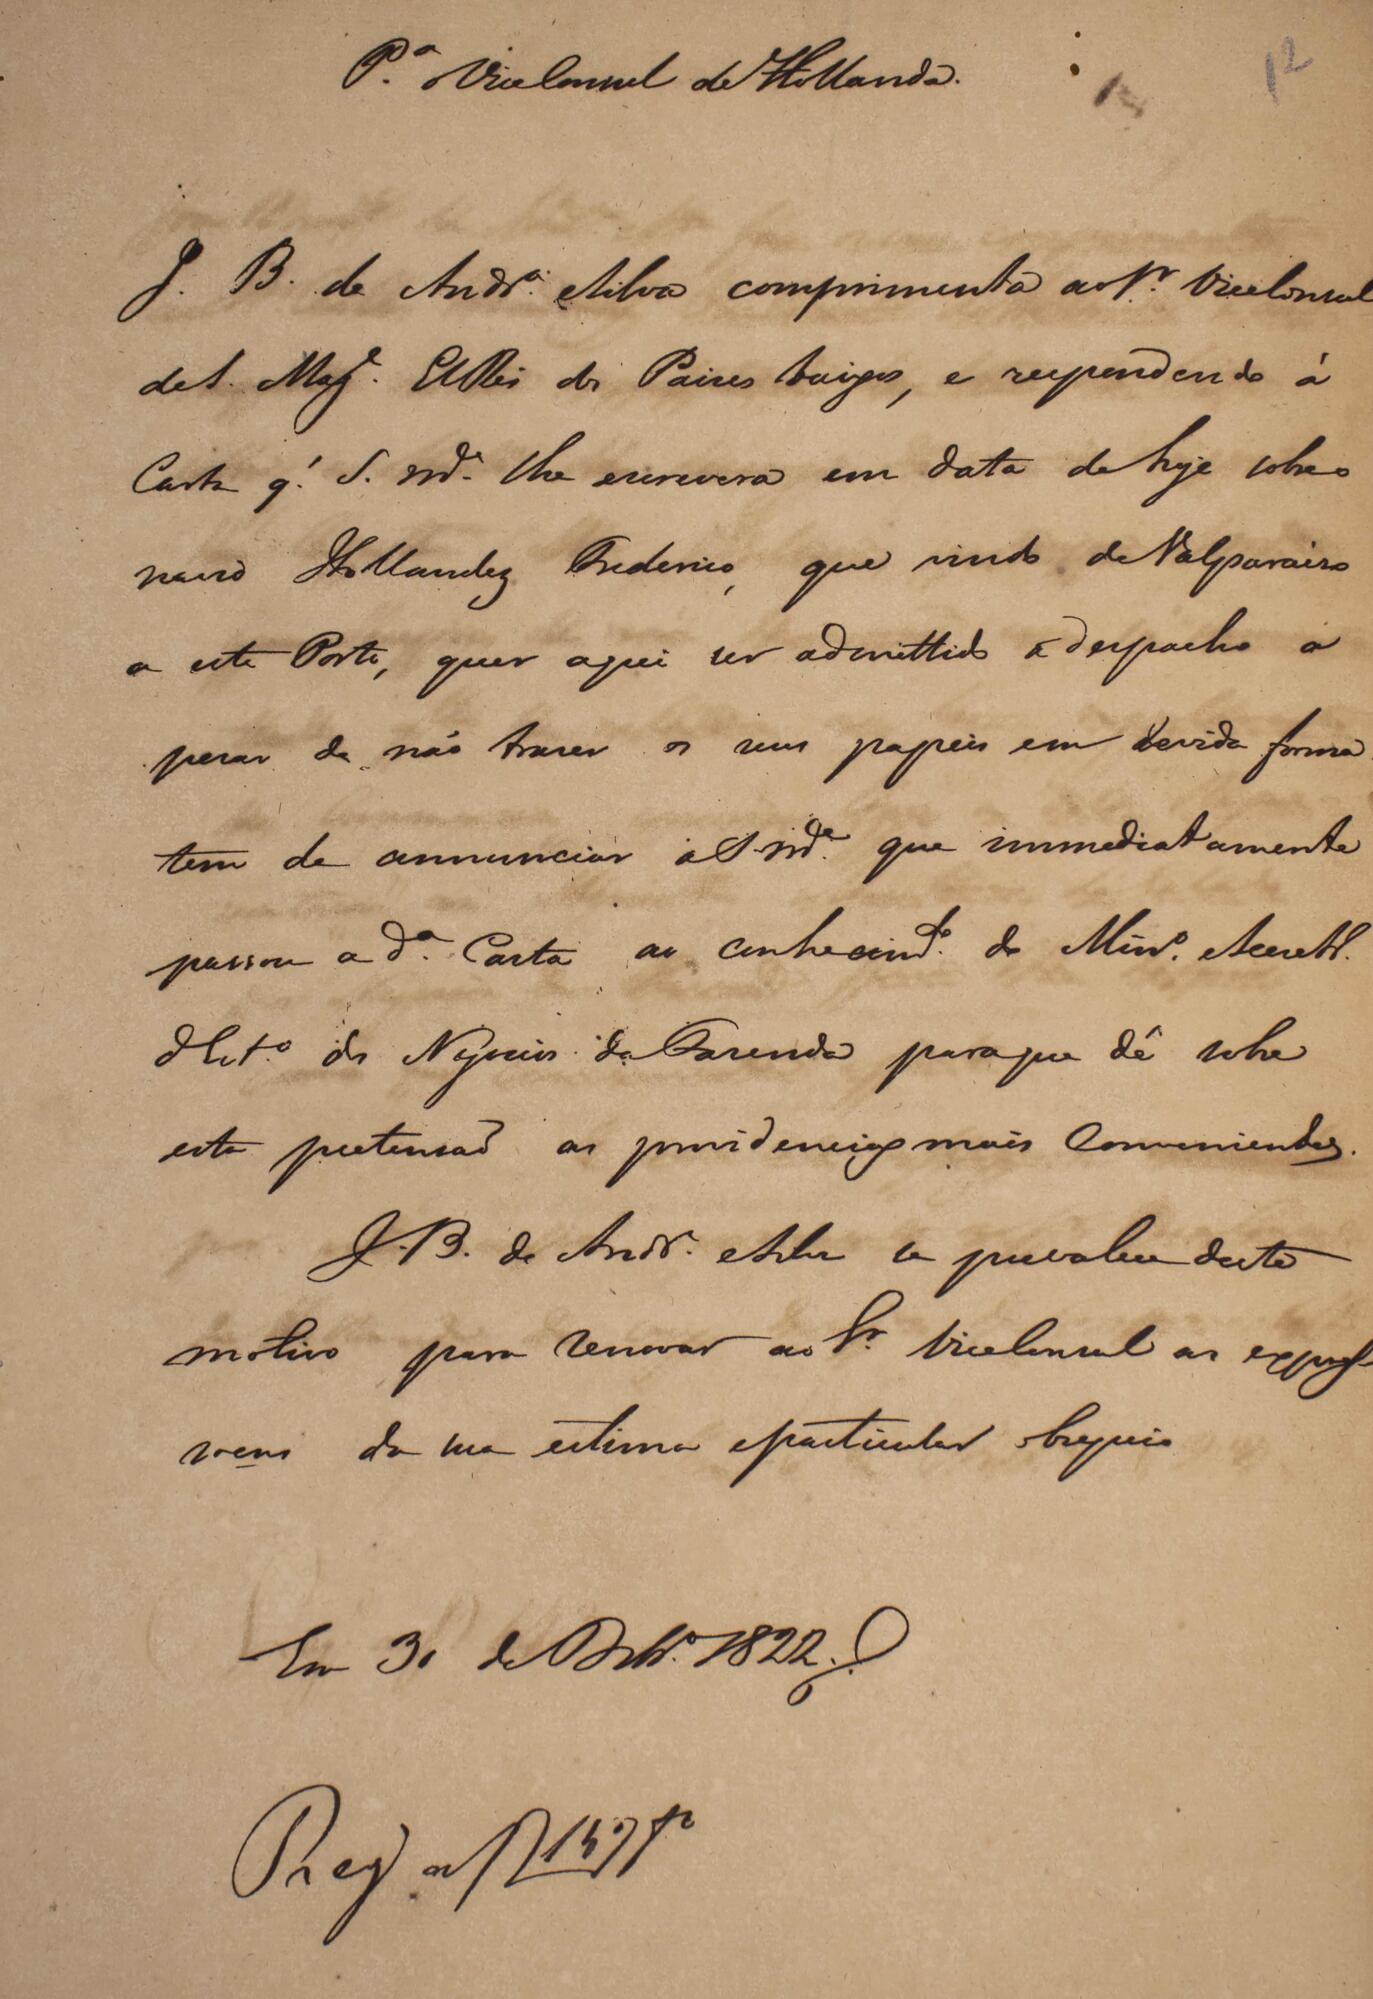 12
P.ª o ViceConsul de Hollanda.
J. B. de Andr.ª e Silva comprimenta ao Sr. ViceConsul
de S. Mag.e ElRei dos Paises baixos, e respondendo á
Carta q.' S. M.ce lhe escrevera em data de hoje sobre o
navio Hollandez Frederico, que vindo de Valparaizo
a este Porto, quer aqui ser admittido a despacho a
pezar de não trazer os seus papeis em devida forma
tem de annunciar a S. M.ce que immediatamente
passou a d.ª Carta ao conhecim.to do Min.º e Secretr.
d'Est.º dos Negocios da Fazenda para que dê sobre
esta pretensaõ as providencias mais Convenientes.
J. B. de Andr.ª e Silva se prevalece deste
motivo para renovar ao Sr. ViceConsul as expres
soens da sua estima e particular obsequio
Em 30 de Dezbr.º 1822.
Reg